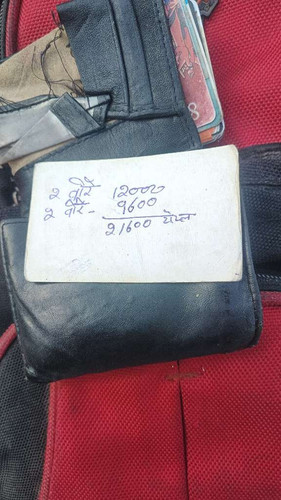 2 वीरे 12000
2 वीरे - 9600
21600 येप्ल